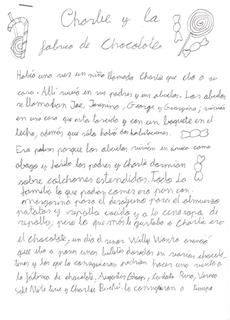 Charlie y la
fabrica de Chocolate
Había una vez un niño llamado Charlie que iba a su
casa. Allí vivía en sus padres y sus abuelos. Los abuelos
se llamaban Joe, Josefina, George y Georgina; vivían
en una casa que esta torcida y con un boquete en el
techo, además que sólo había dos habitaciones.
Era pobre porque los abuelos vivían en único como
abajo y los padres y Charlie dormían
sobre colchones extendidos. Toda la
familia lo que podían comer era pan con
margarina para el desayuno para el almuerzo
patatas y repollo cocido y a la cena sopa de
repollo; pero lo que más le gustaba a Charlie era
el chocolate, un día el señor Willy Wonka anunció
que iba a poner cinco billetes dorados en varios chocola-
tinas y los que lo consiguieran podrían hacer una visita a
la fábrica de chocolate, Augustus Gloop, Veruca
Salt, Mike Tevé y Charlie Bucket lo consiguieron a tiempo